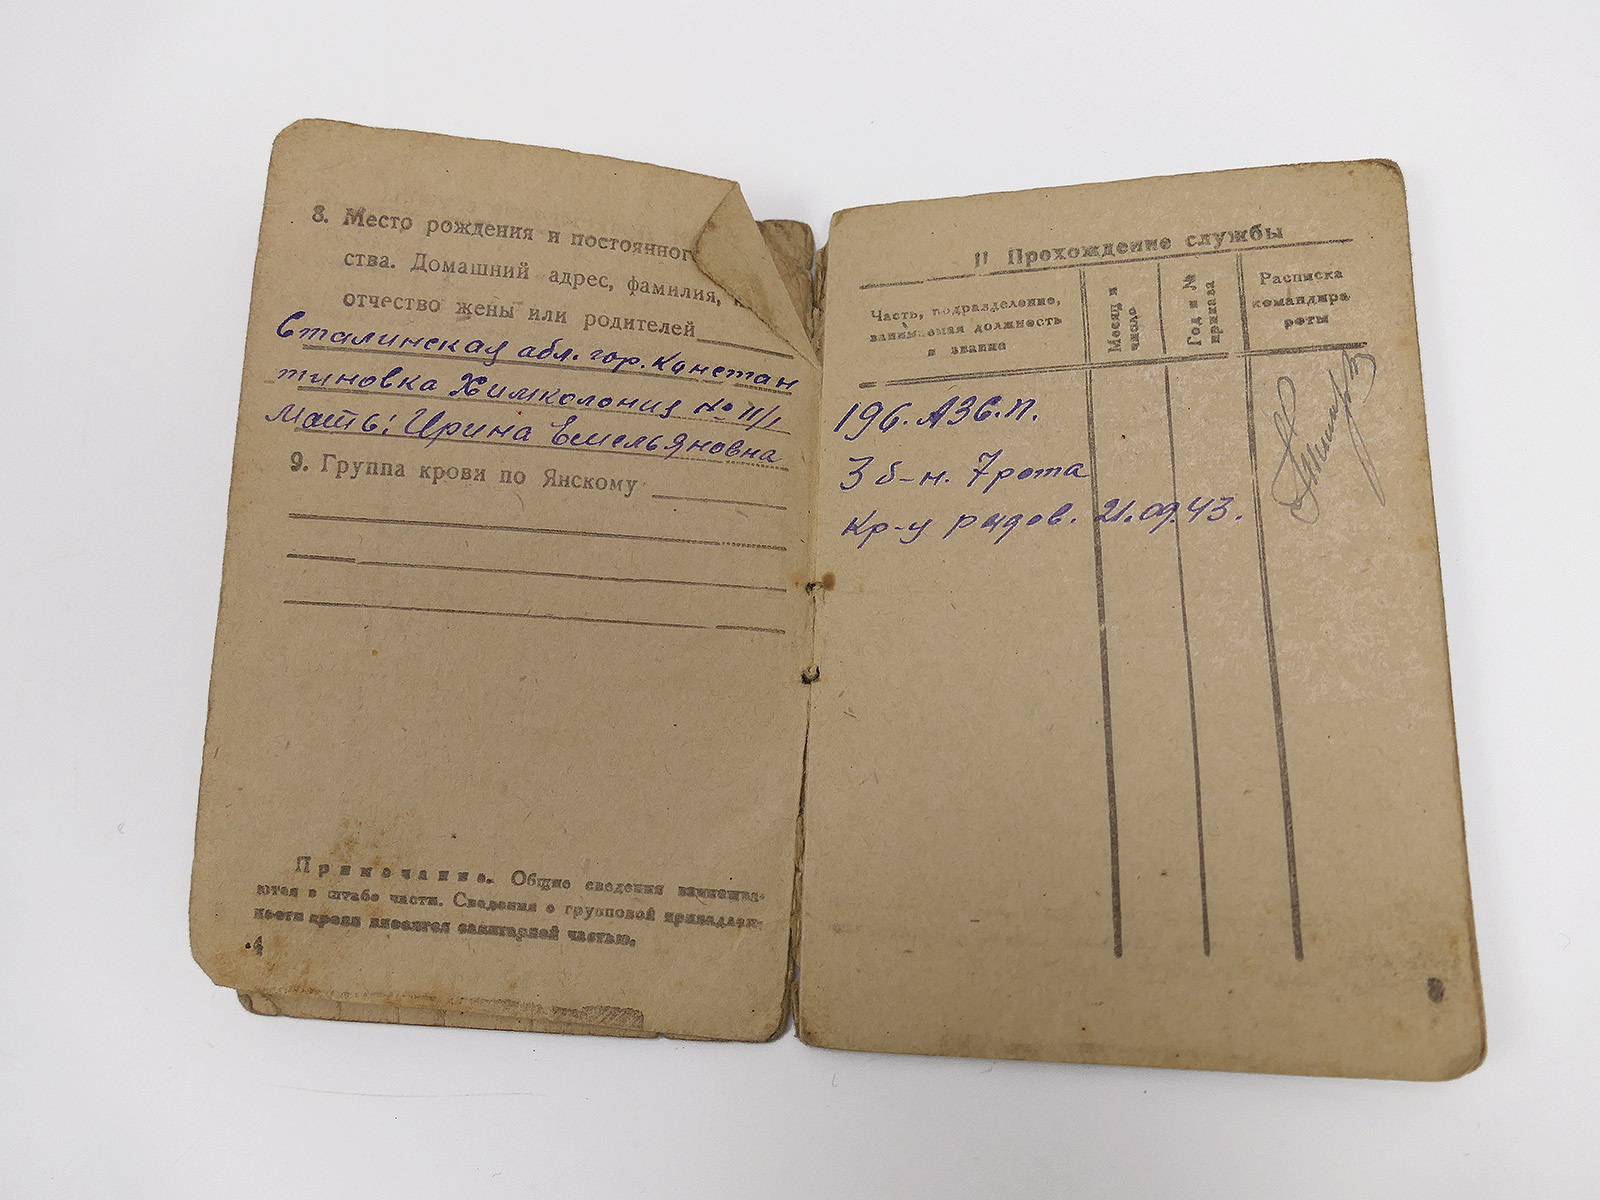 8. Место рождения и постоянног
ства. Домашний адрес, фамилия,
отчество жены или родителей
Сталинская абл. гор. Констан
тиновка Химколония № 11/1
Мать: Ирина Емельяновна
9. Группа крови по Янскому
Примечание. Общие сведения вписыва-
ются в штабе части. Сведения о групповой принадлеж-
ности крови вносятся санитарной частью.
4
II Прохождение службы
Часть, подразделение,
занимаемая должность
и звание
Месяц и
число
Год и №
приказа
Расписка
командира
роты
196. АЗС.П.
3 б-н. 7 рота
Кр-ц рядов. 21.09.43.